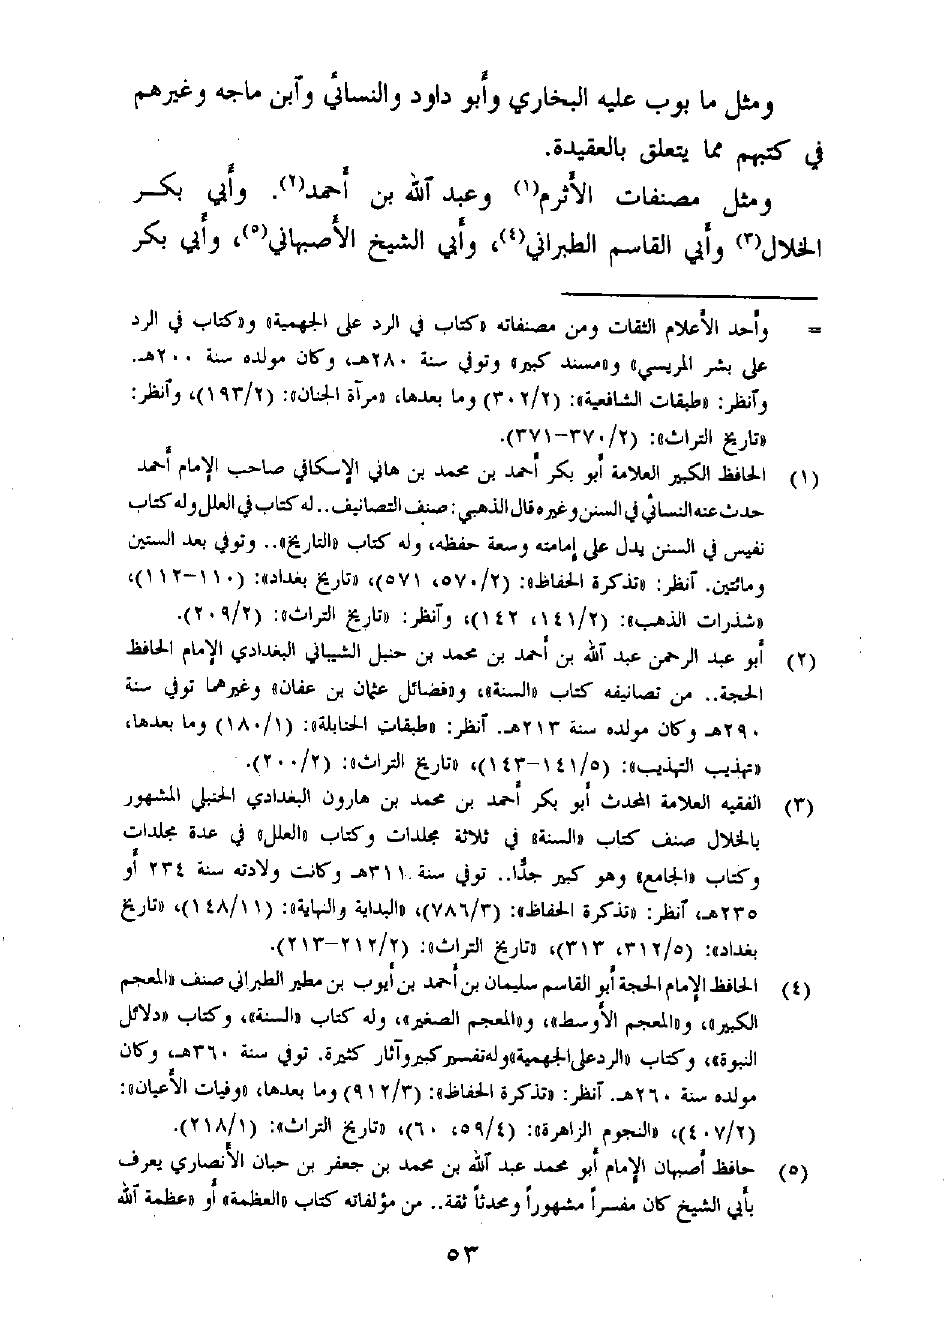 ومثل ما بوب عليه البخاري وأبو داود والنسائي وآبن ماجه وغيرهم
في كتبهم مما يتعلق بالعقيدة.
ومثل مصنفات الأثرم(١) وعبد آلله بن أحمد(٢). وأبي بكر
الخلال(٣) وأبي القاسم الطبراني(٤)، وأبي الشيخ الأصبهاني(٥)، وأبي بكر
= وأحد الأعلام الثقات ومن مصنفاته «كتاب في الرد على الجهمية» و«كتاب في الرد
على بشر المريسي» و«مسند كبير» وتوفي سنة ٢٨٠هـ، وكان مولده سنة ٢٠٠هـ.
وآنظر: «طبقات الشافعية»: (٣٠٢/٢) وما بعدها، «مرآة الجنان»: (١٩٣/٢)، وآنظر:
«تاريخ التراث»: (٣٧٠/٢-٣٧١).
(١) الحافظ الكبير العلامة أبو بكر أحمد بن محمد بن هاني الإسكافي صاحب الإمام أحمد
حدث عنه النسائي في السنن وغيره قال الذهبي: صنف التصانيف.. له كتاب في العلل وله كتاب
نفيس في السنن يدل على إمامته وسعة حفظه، وله كتاب «التاريخ».. وتوفي بعد الستين
ومائتين. آنظر: «تذكرة الحفاظ»: (٥٧٠/٢، ٥٧١)، «تاريخ بغداد»: (١١٠-١١٢)،
«شذرات الذهب»: (١٤١/٢، ١٤٢)، وآنظر: «تاريخ التراث»: (٢٠٩/٢).
(٢) أبو عبد الرحمن عبد آلله بن أحمد بن محمد بن حنبل الشيباني البغدادي الإمام الحافظ
الحجة.. من تصانيفه كتاب «السنة»، و«فضائل عثمان بن عفان» وغيرهما توفي سنة
٢٩٠هـ وكان مولده سنة ٢١٣هـ. آنظر: «طبقات الحنابلة»: (١٨٠/١) وما بعدها،
«تهذيب التهذيب»: (١٤١/٥-١٤٣)، «تاريخ التراث»: (٢٠٠/٢).
(٣) الفقيه العلامة المحدث أبو بكر أحمد بن محمد بن هارون البغدادي الحنبلي المشهور
بالخلال صنف كتاب «السنة» في ثلاثة مجلدات وكتاب «العلل» في عدة مجلدات
وكتاب «الجامع» وهو كبير جدًّا.. توفي سنة ٣١١هـ وكانت ولادته سنة ٢٣٤ أو
٢٣٥هـ، آنظر: «تذكرة الحفاظ»: (٧٨٦/٣)، «البداية والنهاية»: (١٤٨/١١)، «تاريخ
بغداد»: (٣١٢/٥، ٣١٣)، «تاريخ التراث»: (٢١٢/٢-٢١٣).
(٤) الحافظ الإمام الحجة أبو القاسم سليمان بن أحمد بن أيوب بن مطير الطبراني صنف «المعجم
الكبير»، و«المعجم الأوسط»، و«المعجم الصغير»، وله كتاب «السنة»، وكتاب «دلائل
النبوة»، وكتاب «الرد على الجهمية» وله تفسير كبير وآثار كثيرة. توفي سنة ٣٦٠هـ، وكان
مولده سنة ٢٦٠هـ. آنظر: «تذكرة الحفاظ»: (٩١٢/٣) وما بعدها، «وفيات الأعيان»:
(٤٠٧/٢)، «النجوم الزاهرة»: (٥٩/٤، ٦٠)، «تاريخ التراث»: (٢١٨/١).
(٥) حافظ أصبهان الإمام أبو محمد عبد آلله بن محمد بن جعفر بن حبان الأنصاري يعرف
بأبي الشيخ كان مفسراً مشهوراً ومحدثاً ثقة.. من مؤلفاته كتاب «العظمة» أو «عظمة آلله
٥٣